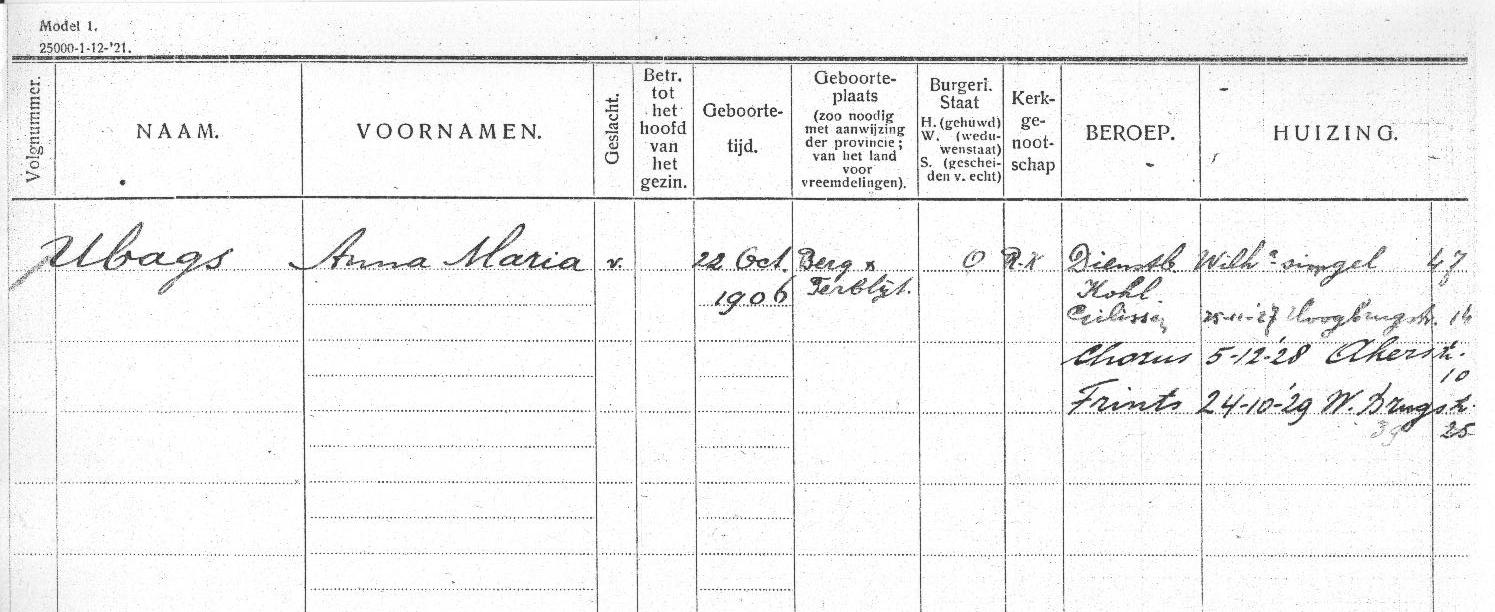 Model 1.
25000-1-12-'21.
Volgnummer.
NAAM.
VOORNAMEN.
Geslacht.
Betr.
tot
het
hoofd
van
het
gezin.
Geboorte-
tijd.
Geboorte-
plaats
(zoo noodig
met aanwijzing
der provincie;
van het land
voor
vreemdelingen).
Burgerl.
Staat
H. (gehuwd)
W. (wedu-
wenstaat)
S. (geschei-
den v. echt)
Kerk-
ge-
noot-
schap
BEROEP.
HUIZING.
Ubags Anna Maria v. 22 Oct. Berg & O R.K Dienstb. Wilhª singel 47
1906 Terblijt. Kohl.
25-11-'27 Hoogbrugstr. 14
Chorus 5-12-'28 Akerstr.
10
Frints 24-10-'29 W. Brugstr.
39 25